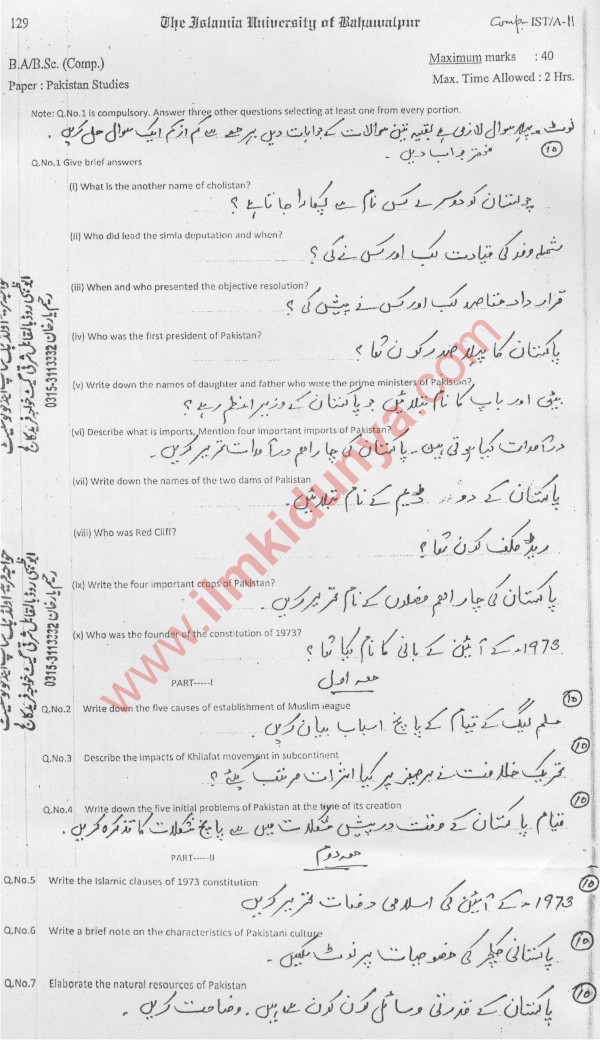 129 The Islamia University of Bahawalpur Comp- IST/A-11
B.A/B.Sc. (Comp.) Maximum marks : 40
Paper : Pakistan Studies Max. Time Allowed : 2 Hrs.
Note: Q.No.1 is compulsory. Answer three other questions selecting at least one from every portion.
نوٹ۔ پہلا سوال لازمی ہے بقیہ تین سوالات کے جوابات دیں ہر حصے سے کم از کم ایک سوال حل کریں۔
مختصر جواب دیں۔ 10
Q.No.1 Give brief answers
(i) What is the another name of cholistan?
چولستان کو دوسرے کس نام سے پکارا جاتا ہے؟
(ii) Who did lead the simla deputation and when?
شملہ وفد کی قیادت کب اور کس نے کی؟
(iii) When and who presented the objective resolution?
قرار داد مقاصد کب اور کس نے پیش کی؟
(iv) Who was the first president of Pakistan?
پاکستان کا پہلا صدر کون تھا؟
(v) Write down the names of daughter and father who were the prime ministers of Pakistan?
بیٹی اور باپ کا نام بتلائیں جو پاکستان کے وزیر اعظم رہے؟
(vi) Describe what is imports, Mention four important imports of Pakistan?
درآمدات کیا ہوتی ہیں۔ پاکستان کی چار اہم درآمدات تحریر کریں۔
(vii) Write down the names of the two dams of Pakistan
پاکستان کے دو ڈیم کے نام بتلائیں۔
(viii) Who was Red Cliff?
ریڈ کلف کون تھا؟
(ix) Write the four important crops of Pakistan?
پاکستان کی چار اھم فصلوں کے نام تحریر کریں۔
(x) Who was the founder of the constitution of 1973?
1973ء کے آئین کے بانی کا نام کیا تھا؟
PART-----I حصہ اول
Q.No.2 Write down the five causes of establishment of Muslim league 10
مسلم لیگ کے قیام کے پانچ اسباب بیان کریں۔
Q.No.3 Describe the impacts of Khilafat movement in subcontinent 10
تحریک خلافت نے برصغیر پر کیا اثرات مرتب کیئے؟
Q.No.4 Write down the five initial problems of Pakistan at the time of its creation 10
قیام پاکستان کے وقت درپیش مشکلات میں سے پانچ مشکلات کا تذکرہ کریں۔
PART-----II حصہ دوم
Q.No.5 Write the Islamic clauses of 1973 constitution 10
1973ء کے آئین کی اسلامی دفعات تحریر کریں
Q.No.6 Write a brief note on the characteristics of Pakistani culture 10
پاکستانی کلچر کی خصوصیات پر نوٹ لکھیں۔
Q.No.7 Elaborate the natural resources of Pakistan 10
پاکستان کے قدرتی وسائل کون کون سے ہیں۔ وضاحت کریں۔
رحیم یار خان 0315-3113332
رحیم یار خان 0315-3113332
www.ilmkidunya.com